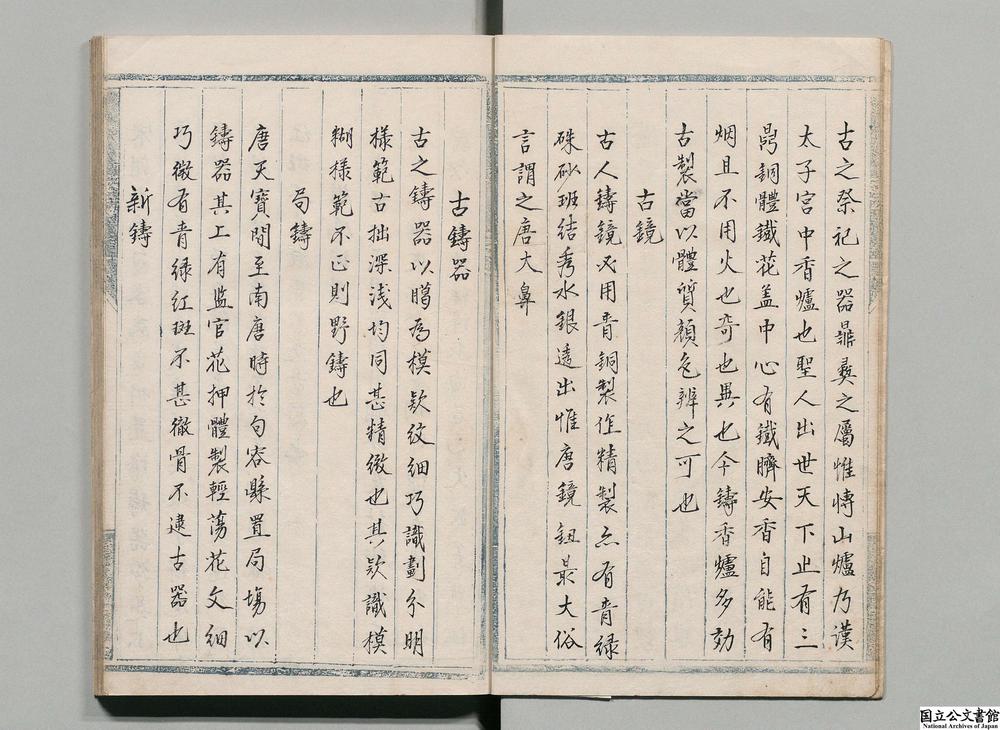 古之祭祀之器鼎彝之屬惟博山爐乃漢
太子宮中香爐也聖人出世天下止有三
鼎銅體鐵花盖中心有鐵臍安香自能有
烟且不用火也奇也異也今鑄香爐多効
古製當以體質顏色辨之可也
古鏡
古人鑄鏡必用青銅製作精製亦有青緑
硃砂班結秀水銀透出惟唐鏡鈕最大俗
言謂之唐大鼻
古鑄器
古之鑄器以臈為模欵紋細巧識劃分明
様範古拙深淺均同甚精緻也其欵識模
糊様範不正則野鑄也
局鑄
唐天寶間至南唐時於句容縣置局塲以
鑄器其上有监官花押體製輕薄花文細
巧微有青緑紅斑不甚徹骨不逮古器也
新鑄
国立公文書館
National Archives of Japan